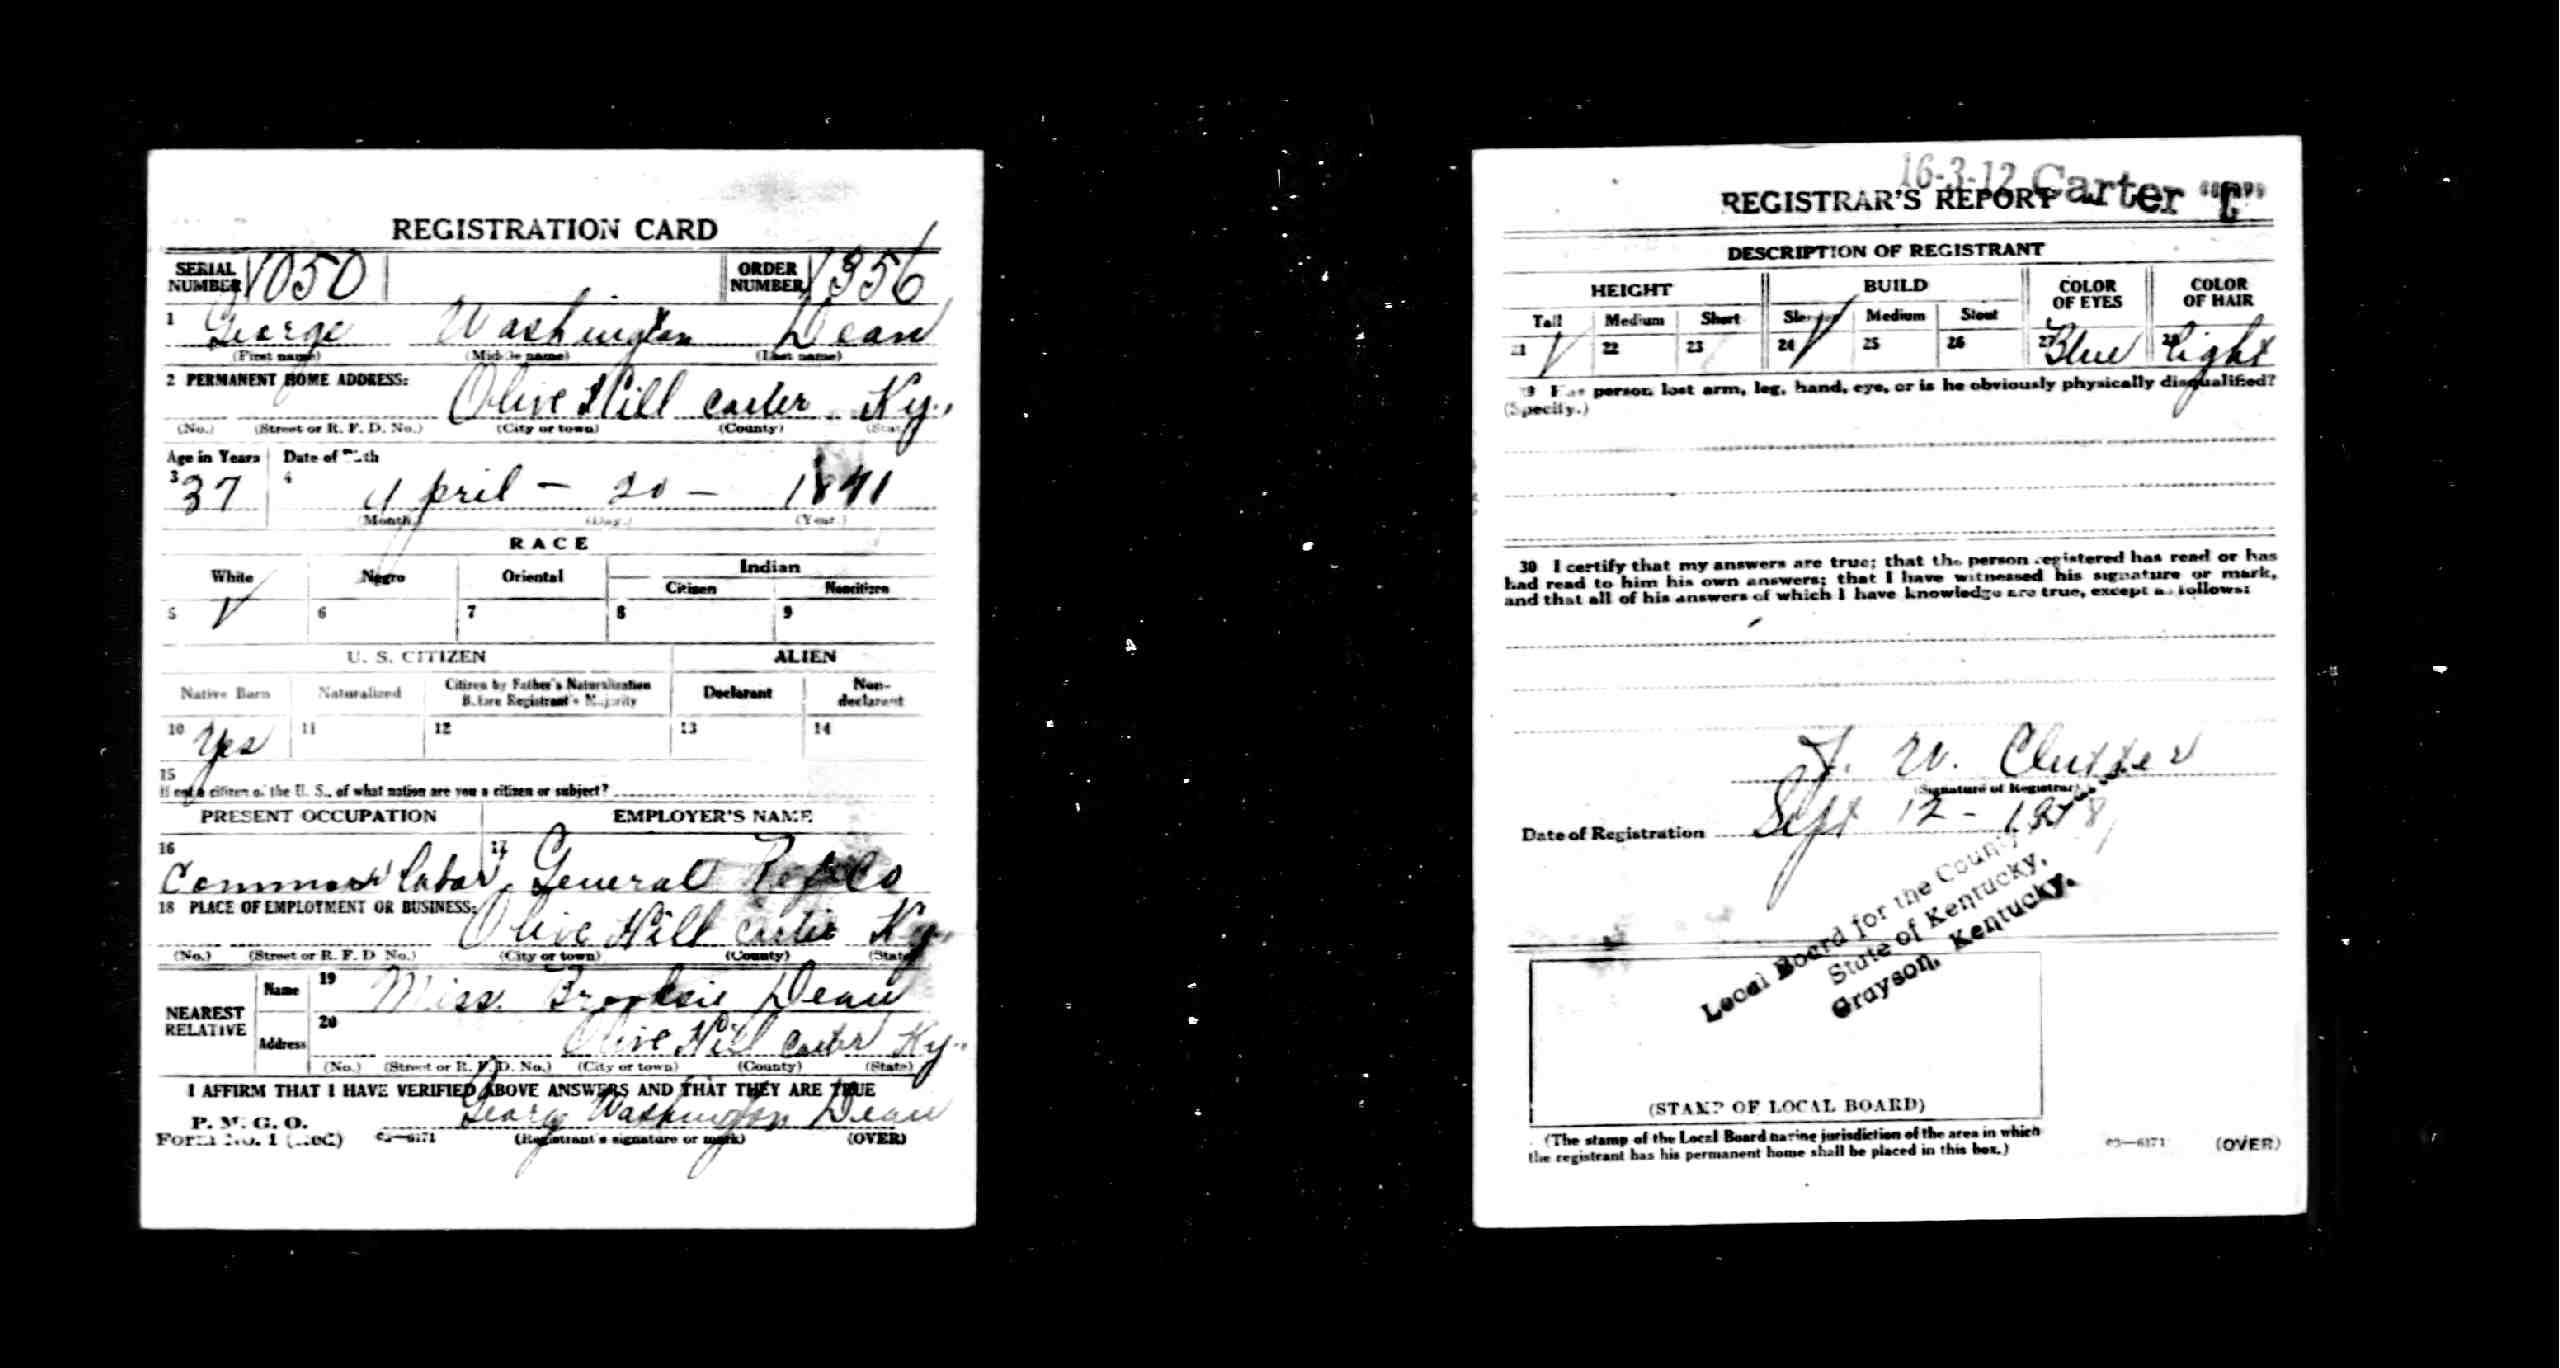 REGISTRATION CARD
SERIAL NUMBER 1050 ORDER NUMBER 1356
1 George Washington Dean
(First name) (Middle name) (Last name)
2 PERMANENT HOME ADDRESS:
Olive Hill carter Ky.
(No.) (Street or R. F. D. No.) (City or town) (County) (State)
Age in Years Date of Birth
3 37 4 April - 20 - 1881
(Month.) (Day.) (Year.)
RACE
White Negro Oriental Indian
Citizen Noncitizen
5 √ 6 7 8 9
U. S. CITIZEN ALIEN
Native Born Naturalized Citizen by Father's Naturalization Before Registrant's Majority Declarant Non-declarant
10 Yes 11 12 13 14
15
If not a citizen of the U. S., of what nation are you a citizen or subject?
PRESENT OCCUPATION EMPLOYER'S NAME
16 Common labor 17 General
18 PLACE OF EMPLOYMENT OR BUSINESS:
Olive Hill carter Ky.
(No.) (Street or R. F. D. No.) (City or town) (County) (State)
NEAREST RELATIVE
Name 19 Miss. Brooksie Dean
Address 20 Olive Hill carter Ky.
(No.) (Street or R. F. D. No.) (City or town) (County) (State)
I AFFIRM THAT I HAVE VERIFIED ABOVE ANSWERS AND THAT THEY ARE TRUE
P. M. G. O.
Form No. 1 (Red) 03—6171 George Washington Dean
(Registrant's signature or mark) (OVER)
16-3-12 Carter "C"
REGISTRAR'S REPORT
DESCRIPTION OF REGISTRANT
HEIGHT BUILD COLOR OF EYES COLOR OF HAIR
Tall Medium Short Slender Medium Stout
21 √ 22 23 24 √ 25 26 27 Blue 28 light
29 Has person lost arm, leg, hand, eye, or is he obviously physically disqualified?
(Specify.)
30 I certify that my answers are true; that the person registered has read or has
had read to him his own answers; that I have witnessed his signature or mark,
and that all of his answers of which I have knowledge are true, except as follows:
W. Clutter
(Signature of Registrar)
Date of Registration Sept 12 - 1918
Local Board for the County
State of Kentucky,
Grayson, Kentucky.
(STAMP OF LOCAL BOARD)
(The stamp of the Local Board having jurisdiction of the area in which
the registrant has his permanent home shall be placed in this box.)
03—6171 (OVER)